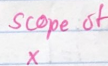 scope of
x